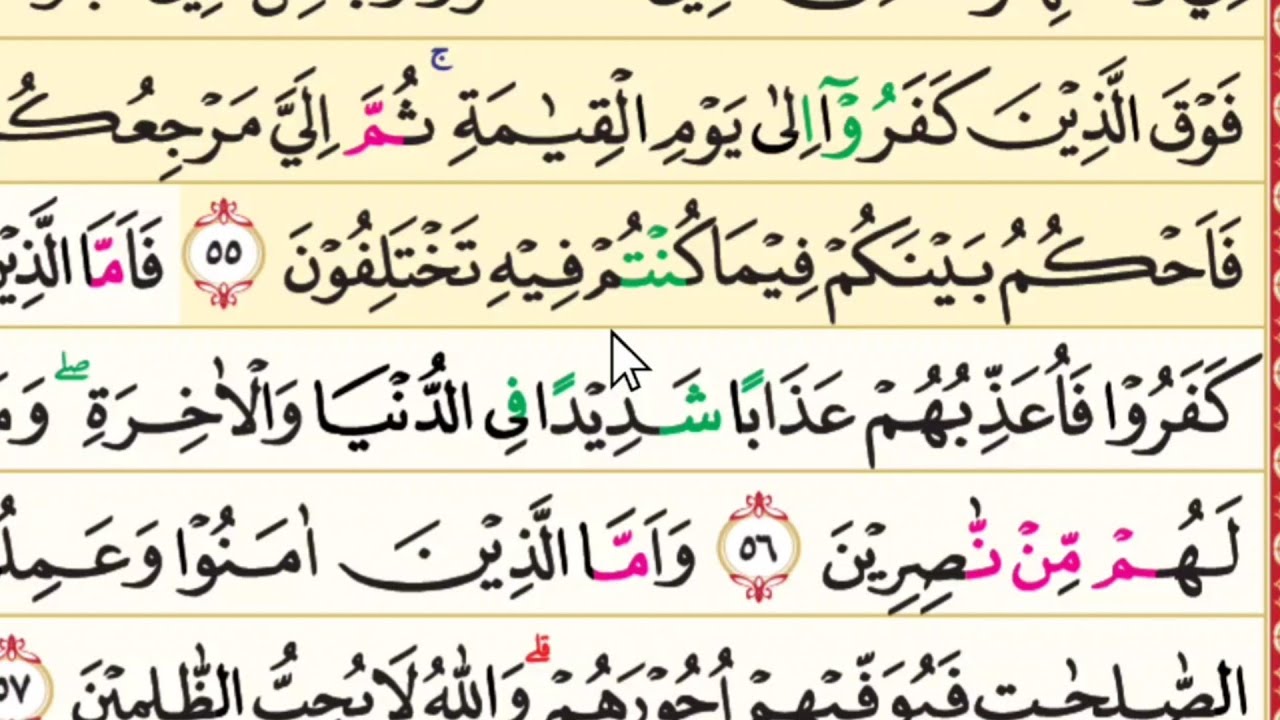 فَوْقَ الَّذِيْنَ كَفَرُوْۤا اِلٰى يَوْمِ الْقِيٰمَةِ ۚ ثُمَّ اِلَيَّ مَرْجِعُكُ
فَاَحْكُمُ بَيْنَكُمْ فِيْمَا كُنْتُمْ فِيْهِ تَخْتَلِفُوْنَ ٥٥ فَاَمَّا الَّذِيْ
كَفَرُوْا فَاُعَذِّبُهُمْ عَذَابًا شَدِيْدًا فِى الدُّنْيَا وَالْاٰخِرَةِ ۖ وَمَ
لَهُمْ مِّنْ نّٰصِرِيْنَ ٥٦ وَاَمَّا الَّذِيْنَ اٰمَنُوْا وَعَمِلُ
الصّٰلِحٰتِ فَيُوَفِّيْهِمْ اُجُوْرَهُمْ ۗ وَاللّٰهُ لَا يُحِبُّ الظّٰلِمِيْنَ ٥٧